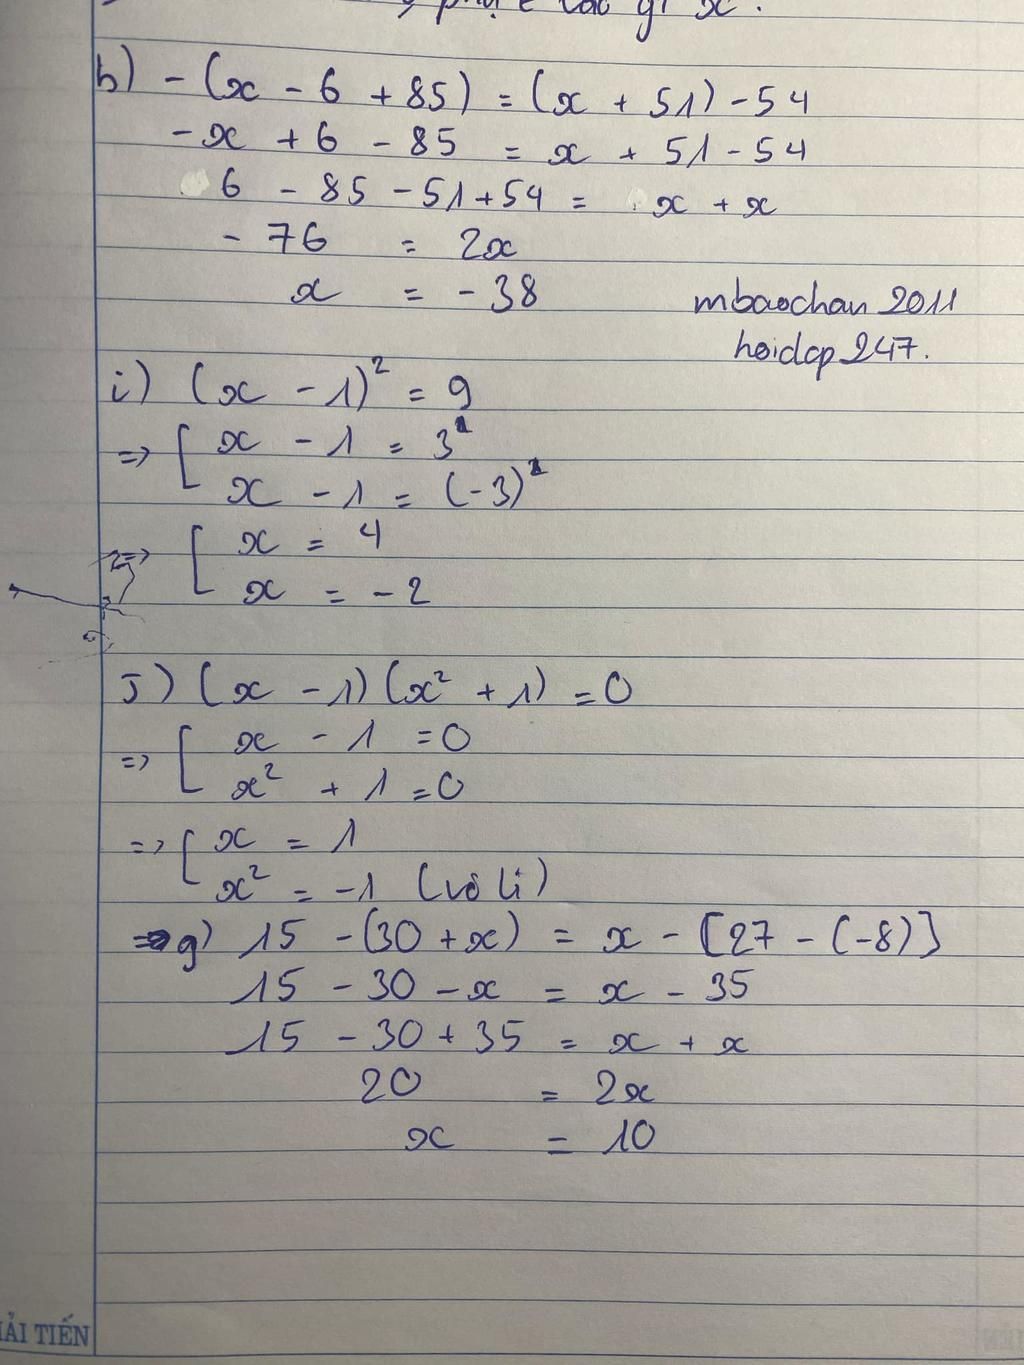 h) - (x - 6 + 85) = (x + 51) - 54
- x + 6 - 85 = x + 51 - 54
6 - 85 - 51 + 54 = x + x
- 76 = 2x
x = - 38
mbaochan 2011
hoidap 247.
i) (x - 1)² = 9
=> [ x - 1 = 3
x - 1 = (-3)
=> [ x = 4
x = - 2
J) (x - 1) (x² + 1) = 0
=> [ x - 1 = 0
x² + 1 = 0
=> [ x = 1
x² = -1 (vô lí)
g) 15 - (30 + x) = x - [27 - (-8)]
15 - 30 - x = x - 35
15 - 30 + 35 = x + x
20 = 2x
x = 10
ẢI TIẾN